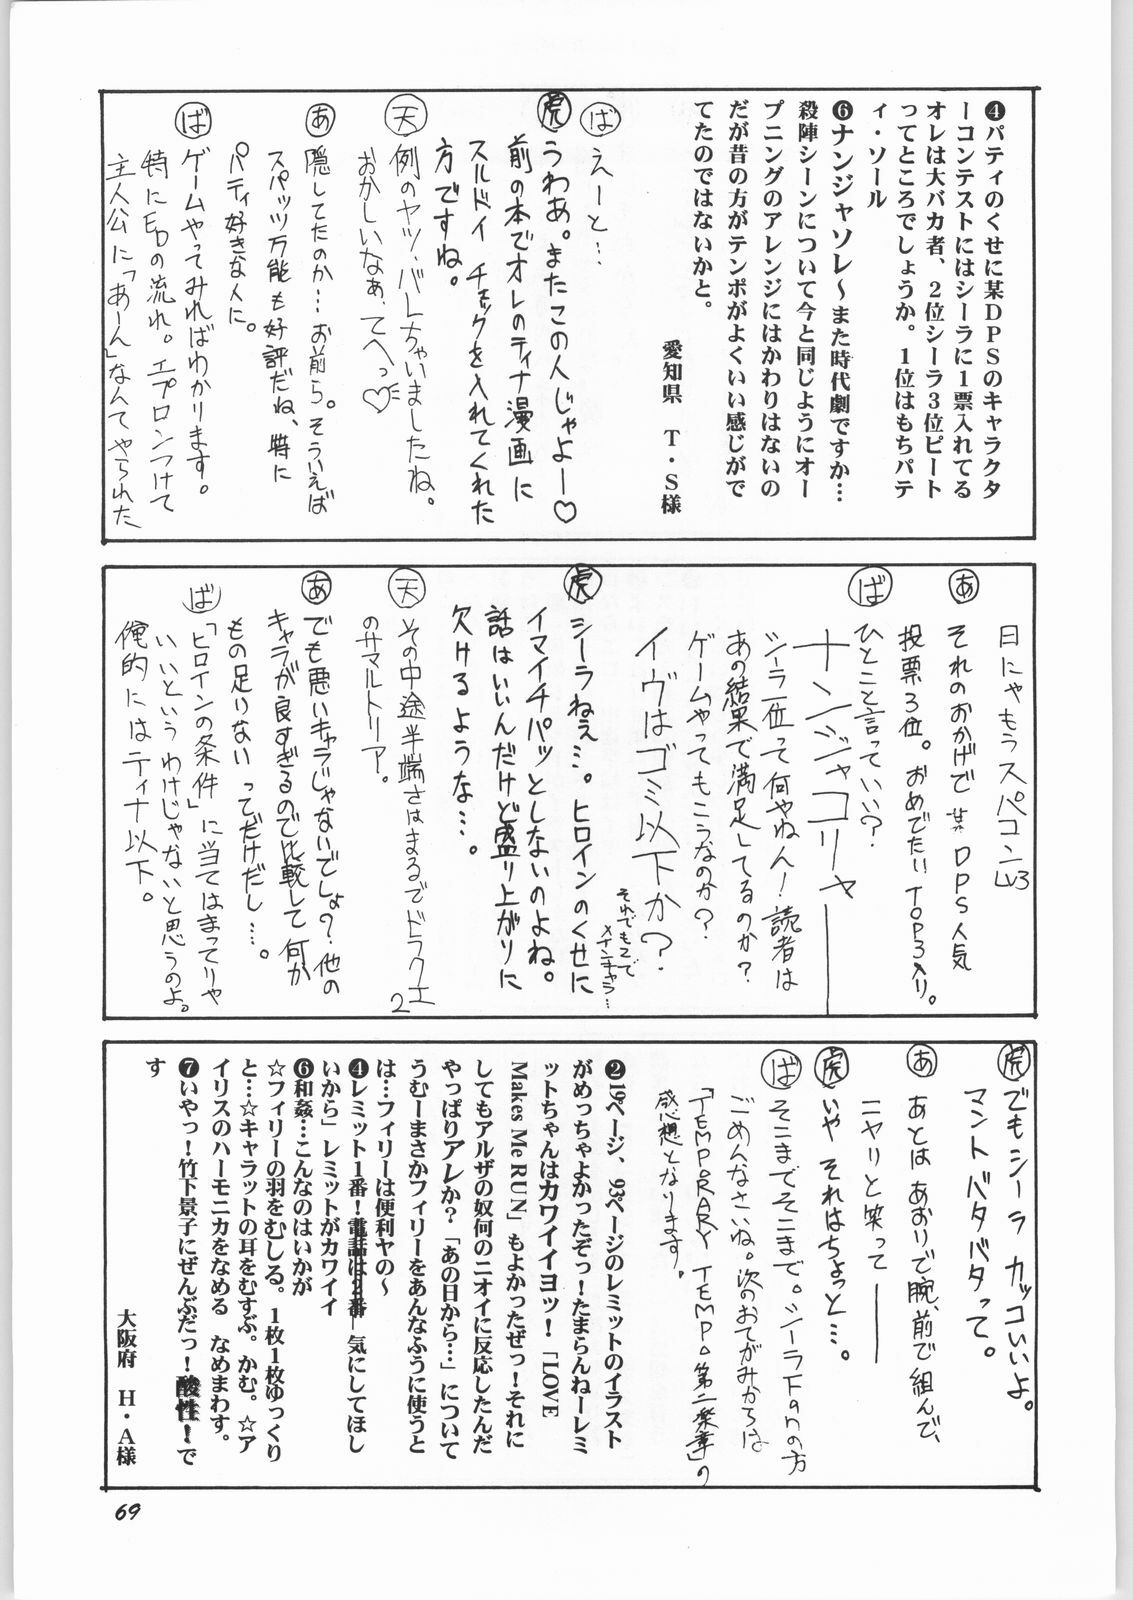 ❹パティのくせに某DPSのキャラクタ
ーコンテストにはシーラに1票入れてる
オレは大バカ者、2位シーラ3位ピート
ってところでしょうか。1位はもちパテ
ィ・ソール
❻ナンジャソレ〜また時代劇ですか…
殺陣シーンについて今と同じようにオー
プニングのアレンジにはかわりはないの
だが昔の方がテンポがよくいい感じがで
てたのではないかと。
愛知県 T・S様
ば えーと…
虎 うわあ。またこの人じゃよー♡
前の本でオレのティナ漫画に
スルドイ チェックを入れてくれた
方ですね。
天 例のヤツ・バレちゃいましたね。
おかしいなぁ、てへっ♡
あ 隠してたのか…お前ら。そういえば
スパッツ万能も好評だね、特に
パティ好きな人に。
ば ゲームやってみればわかります。
特にEDの流れ。エプロンつけて
主人公に「あーん」なんてやられた
日にゃもうスパコンLV3
あ それのおかげで某DPS人気
投票3位。おめでたいTOP3入り。
ば ひとこと言っていい?
ナンジャコリャ――
シーラ一位って何やねん!読者は
あの結果で満足してるのか?
ゲームやってもこうなのか?
イヴはゴミ以下か?
それでもって
メインキャラ…
虎 シーラねぇ…。ヒロインのくせに
イマイチパッとしないのよね。
話はいいんだけど盛り上がりに
欠けるような…。
天 その中途半端さはまるでドラクエ2
のサマルトリア。
あ でも悪いキャラじゃないでしょ?他の
キャラが良すぎるので比較して何か
もの足りないってだけだし…。
ば 「ヒロインの条件」に当てはまってりゃ
いいというわけじゃないと思うのよ。
俺的にはティナ以下。
虎 でもシーラカッコいいよ。
マントバタバタって。
あ あとはあおりで腕、前で組んで、
ニヤリと笑って――
虎 いや それはちょっと…。
ば そこまでそこまで。シーラFanの方
ごめんなさいね。次のおてがみからは
「TEMPORARY TEMPO第二楽章」の
感想となります。
❷19ページ、93ページのレミットのイラスト
がめっちゃよかったぞっ!たまらんねーレミ
ットちゃんはカワイイヨッ!「LOVE
Makes Me RUN」もよかったぜっ!それに
してもアルザの奴何のニオイに反応したんだ
やっぱりアレか?「あの日から…」について
うむーまさかフィリーをあんなふうに使うと
は…フィリーは便利ヤの〜
❹レミット1番!電話は2番―気にしてほし
いから」レミットがカワイイ
❻和姦…こんなのはいかが
☆フィリーの羽をむしる。1枚1枚ゆっくり
と…☆キャラットの耳をむすぶ。かむ。☆ア
イリスのハーモニカをなめる なめまわす。
❼いやっ!竹下景子にぜんぶだっ!酸性!で
す
大阪府 H・A様
69